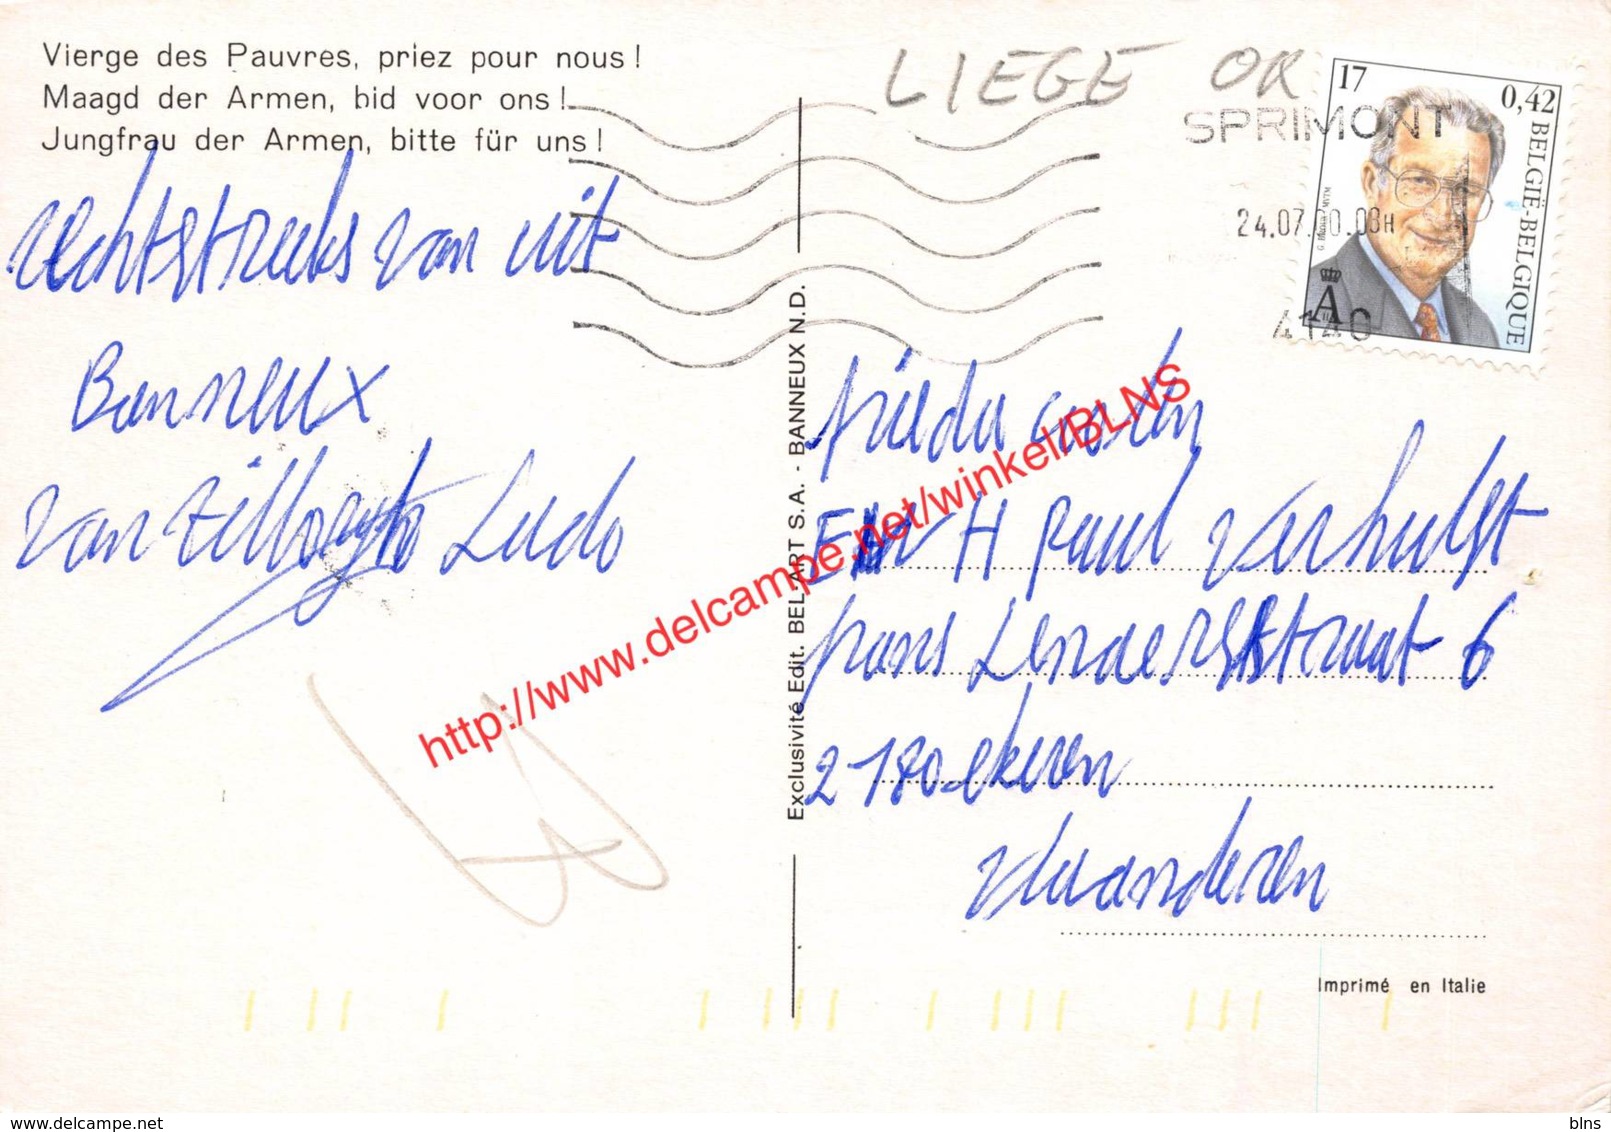 Vierge des Pauvres, priez pour nous !
Maagd der Armen, bid voor ons !
Jungfrau der Armen, bitte für uns !
LIEGE OR
SPRIMONT
17 0,42
BELGIË-BELGIQUE
MVTM
24.07. 0.08H
A
4140
rechtstreeks van uit
Banneux
van Ludo
Exclusivité Edit. BEL-ART S.A. - BANNEUX N.D.
http://www.delcampe.net/winkel/BLNS
En H Paul Verhulst
frans Lenaertsstraat 6
2180 ekeren
vlaanderen
Imprimé en Italie
www.delcampe.net
blns